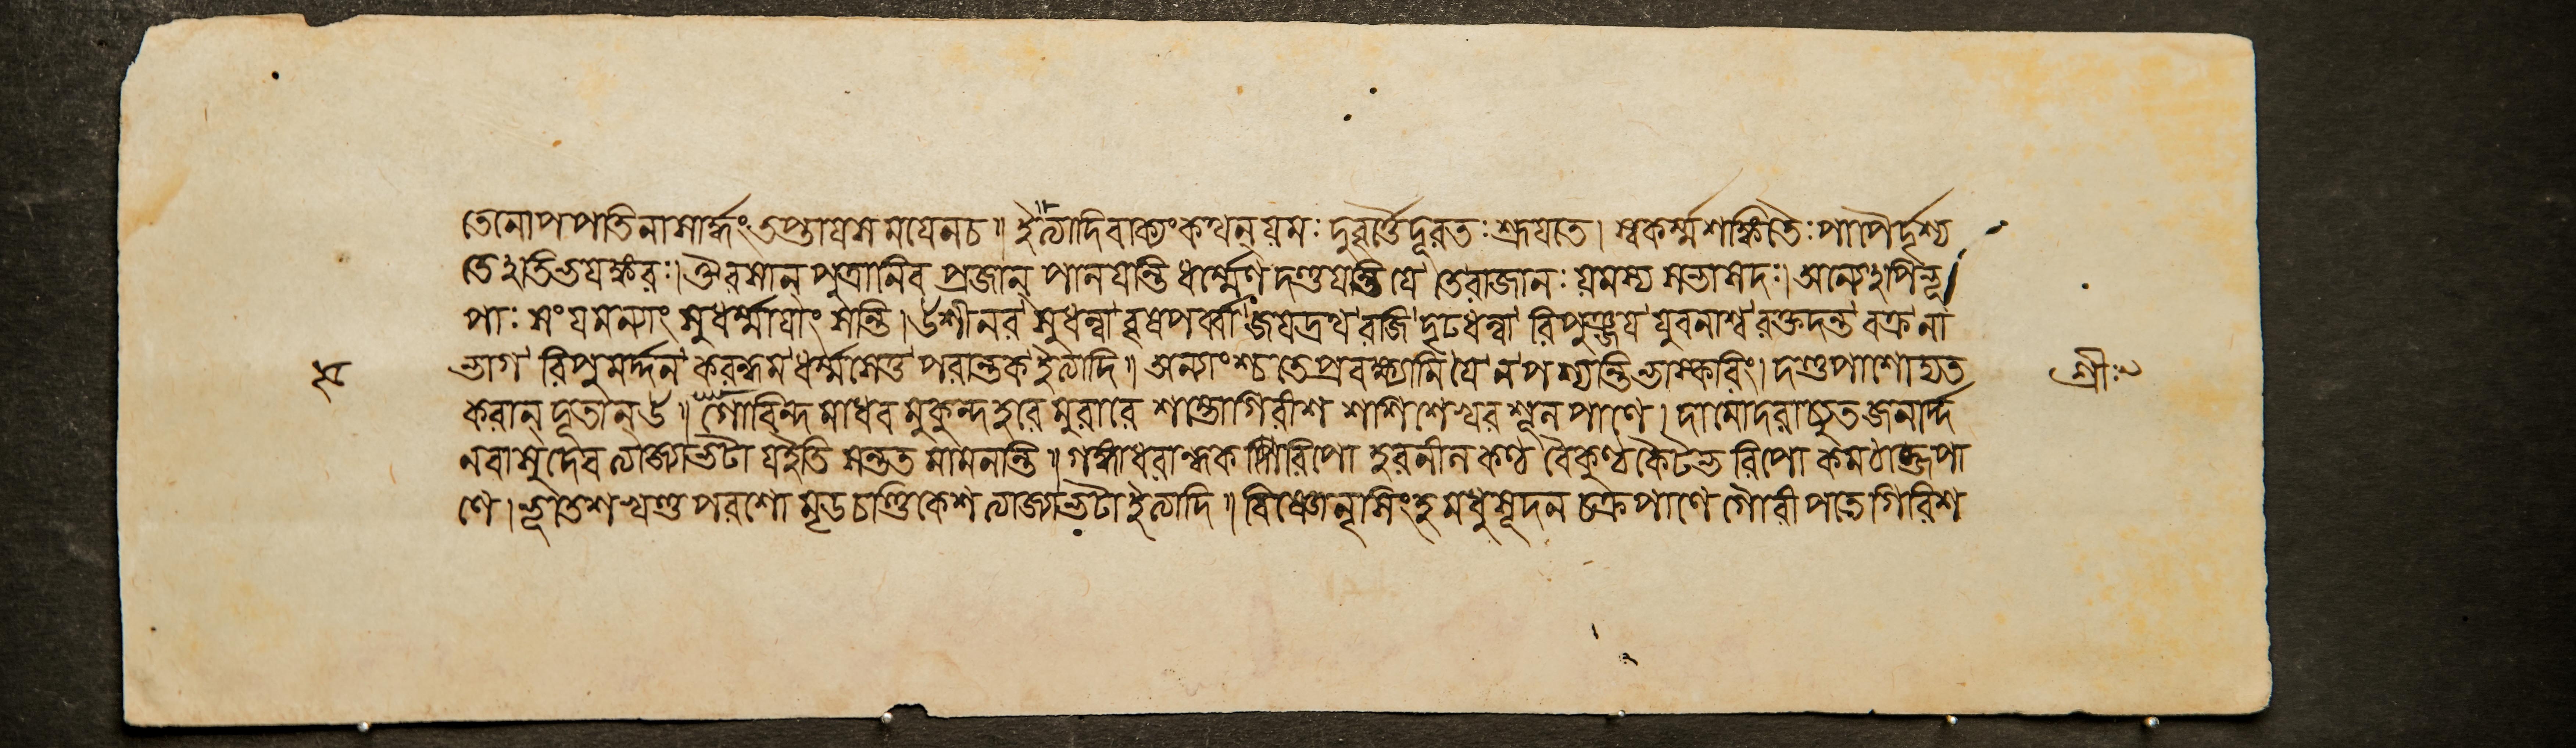 তেনোপপাতিনা সার্দ্ধং তপ্তায়সময়েন চ॥ ইত্যাদি বাক্যং কথন্ যমঃ দুর্বৃত্তৈর্দূরতঃ শ্রূয়তে। স্বকর্ম্মশঙ্কিতৈঃ পাপৈর্দৃশ্য
তেঽতিভয়ঙ্করঃ। ঔরসান্ পুত্রানিব প্রজান্ পালয়ন্তি ধর্ম্মেণ দণ্ডয়ন্তি যে তে রাজানঃ যমস্য সভাসদঃ। অন্যেঽপি ভূ
পাঃ সংযমন্যাং সুধর্ম্মায়াং সন্তি। উশীনর সুধন্বা বৃষপর্ব্বা জয়দ্রথ রজি দৃঢধন্বা রিপুঞ্জয় যুবনাশ্ব রক্তদন্ত বক্রনা
ভাগ রিপুমর্দ্দন করন্ধম ধর্ম্মসেতু পরান্তক ইত্যাদি॥ অন্যাংশ্চ তে প্রবক্ষ্যামি যে ন পশ্যন্তি ভাস্করিং। দণ্ডপাশোদ্যত
করান্ দূতান্ ৬॥ গোবিন্দ মাধব মুকুন্দ হরে মুরারে শম্ভো গিরীশ শশিশেখর শূলপাণে। দামোদরাচ্যুত জনার্দ্দ
ন বাসুদেব ত্যাজ্যা ভটা য ইতি সন্তত মামনন্তি॥ গঙ্গাধরান্ধক রিপো হর নীলকণ্ঠ বৈকুণ্ঠ কৈটভ রিপো কমঠাব্জপা
ণে। ভূতেশ খণ্ডপরশো মৃড চণ্ডিকেশ ত্যাজ্যা ভটা ইত্যাদি॥ বিষ্ণো নৃসিংহ মধুসূদন চক্রপাণে গৌরীপতে গিরিশ
শ্রীঃ